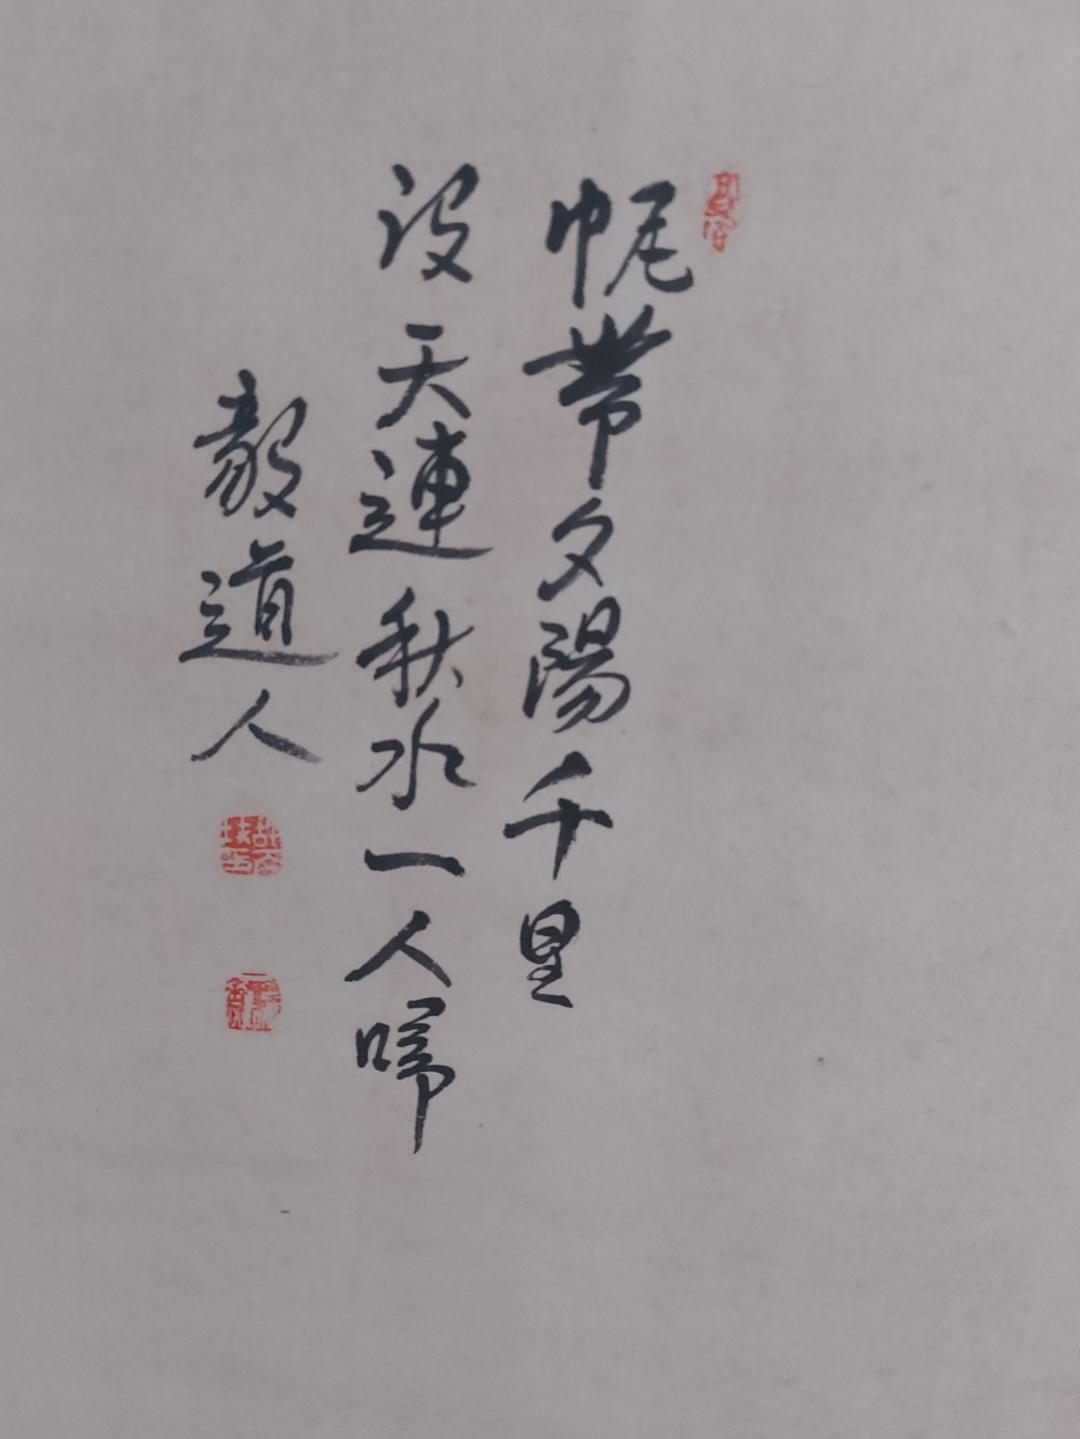 帆帶夕陽千里
沒天連秋水一人歸
毅道人